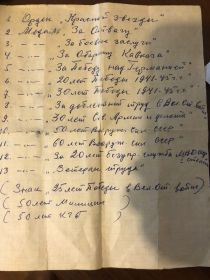 1. Орден „Красной звезды"
2. Медаль „За Отвагу
3. —„— „За боевые заслуги"
4. —„— „За Оборону Кавказа
5. —„— „За Победу над Германией"
6. —„— „20 лет Победы 1941-45 гг."
7. —„— „30 лет Победы 1941-45 гг."
8. —„— „За доблестный труд в Вел От
9. —„— „30 лет С.А. Армии и флота"
10. —„— 50 лет Вооруж Сил СССР"
11. —„— „60 лет Вооруж сил СССР"
12. —„— „За 20 лет безупр. служба
13. —„— „Ветеран труда"
( Знак „25 лет Победы в Вел От войне)
( 50 лет Милиции )
( 50 лет КГБ )